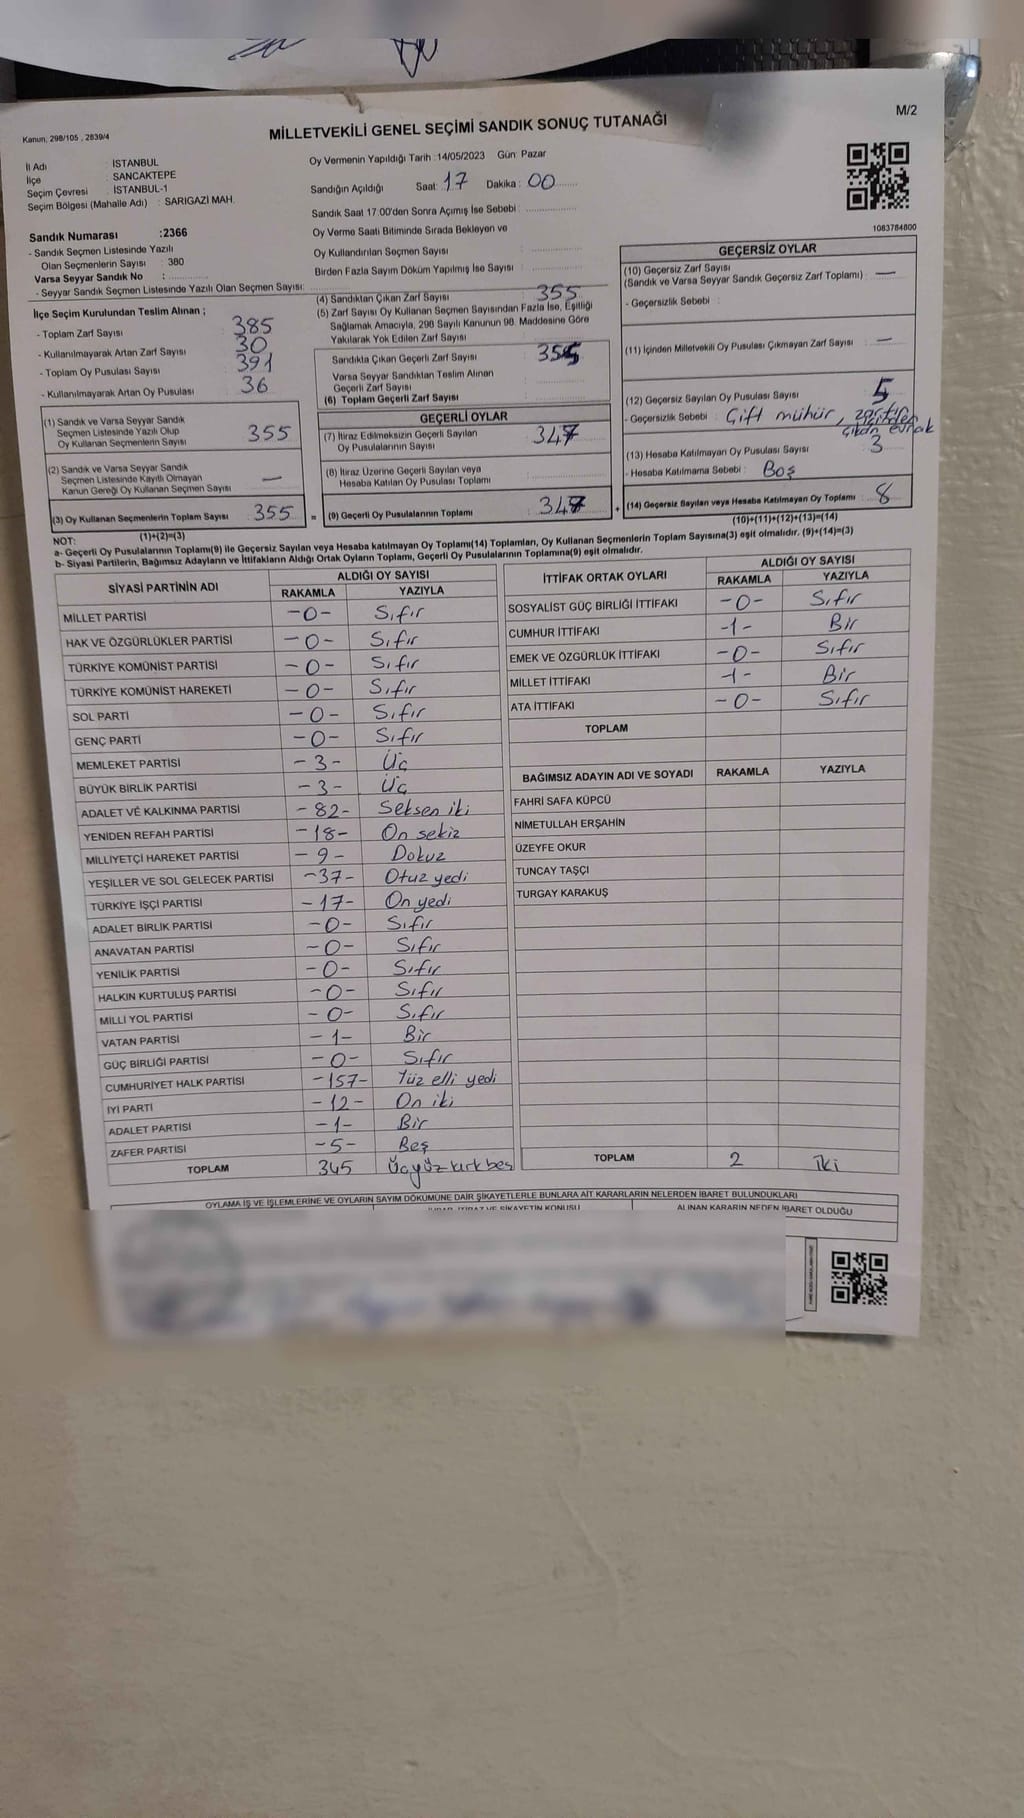 M/2
Kanun, 298/105 , 2839/4
MİLLETVEKİLİ GENEL SEÇİMİ SANDIK SONUÇ TUTANAĞI
İl Adı : İSTANBUL
İlçe : SANCAKTEPE
Seçim Çevresi : İSTANBUL-1
Seçim Bölgesi (Mahalle Adı) : SARIGAZİ MAH.
Oy Vermenin Yapıldığı Tarih :14/05/2023 Gün: Pazar
Sandığın Açıldığı Saat: 17 Dakika : 00
Sandık Saat 17.00'den Sonra Açımış İse Sebebi :
Oy Verme Saati Bitiminde Sırada Bekleyen ve
Oy Kullandırılan Seçmen Sayısı :
Birden Fazla Sayım Döküm Yapılmış İse Sayısı :
1083784800
Sandık Numarası :2366
- Sandık Seçmen Listesinde Yazılı
Olan Seçmenlerin Sayısı : 380
Varsa Seyyar Sandık No :
- Seyyar Sandık Seçmen Listesinde Yazılı Olan Seçmen Sayısı:
İlçe Seçim Kurulundan Teslim Alınan ;
- Toplam Zarf Sayısı 385
- Kullanılmayarak Artan Zarf Sayısı 30
- Toplam Oy Pusulası Sayısı 391
- Kullanılmayarak Artan Oy Pusulası 36
(1) Sandık ve Varsa Seyyar Sandık
Seçmen Listesinde Yazılı Olup
Oy Kullanan Seçmenlerin Sayısı 355
(2) Sandık ve Varsa Seyyar Sandık
Seçmen Listesinde Kayıtlı Olmayan
Kanun Gereği Oy Kullanan Seçmen Sayısı —
(3) Oy Kullanan Seçmenlerin Toplam Sayısı 355 =
(1)+(2)=(3)
(4) Sandıktan Çıkan Zarf Sayısı : 355
(5) Zarf Sayısı Oy Kullanan Seçmen Sayısından Fazla İse, Eşitliği
Sağlamak Amacıyla, 298 Sayılı Kanunun 98. Maddesine Göre
Yakılarak Yok Edilen Zarf Sayısı :
Sandıkta Çıkan Geçerli Zarf Sayısı : 355
Varsa Seyyar Sandıktan Teslim Alınan
Geçerli Zarf Sayısı :
(6) Toplam Geçerli Zarf Sayısı :
GEÇERLİ OYLAR
(7) İtiraz Edilmeksizin Geçerli Sayılan
Oy Pusulasının Sayısı : 347
(8) İtiraz Üzerine Geçerli Sayılan veya
Hesaba Katılan Oy Pusulası Toplamı :
(9) Geçerli Oy Pusulalarının Toplamı : 347 +
GEÇERSİZ OYLAR
(10) Geçersiz Zarf Sayısı
(Sandık ve Varsa Seyyar Sandık Geçersiz Zarf Toplamı) : —
- Geçersizlik Sebebi :
(11) İçinden Milletvekili Oy Pusulası Çıkmayan Zarf Sayısı : —
(12) Geçersiz Sayılan Oy Pusulası Sayısı : 5
- Geçersizlik Sebebi : Çift mühür, zarftan
çıkan evrak
(13) Hesaba Katılmayan Oy Pusulası Sayısı : 3
- Hesaba Katılmama Sebebi : Boş
(14) Geçersiz Sayılan veya Hesaba Katılmayan Oy Toplamı : 8
(10)+(11)+(12)+(13)=(14)
NOT:
a- Geçerli Oy Pusulalarının Toplamı(9) ile Geçersiz Sayılan veya Hesaba katılmayan Oy Toplamı(14) Toplamları, Oy Kullanan Seçmenlerin Toplam Sayısına(3) eşit olmalıdır. (9)+(14)=(3)
b- Siyasi Partilerin, Bağımsız Adayların ve İttifakların Aldığı Ortak Oyların Toplamı, Geçerli Oy Pusulalarının Toplamına(9) eşit olmalıdır.
SİYASİ PARTİNİN ADI ALDIĞI OY SAYISI
RAKAMLA YAZIYLA
MİLLET PARTİSİ -0- Sıfır
HAK VE ÖZGÜRLÜKLER PARTİSİ -0- Sıfır
TÜRKİYE KOMÜNİST PARTİSİ -0- Sıfır
TÜRKİYE KOMÜNİST HAREKETİ -0- Sıfır
SOL PARTİ -0- Sıfır
GENÇ PARTİ -0- Sıfır
MEMLEKET PARTİSİ -3- Üç
BÜYÜK BİRLİK PARTİSİ -3- Üç
ADALET VE KALKINMA PARTİSİ -82- Seksen iki
YENİDEN REFAH PARTİSİ -18- On sekiz
MİLLİYETÇİ HAREKET PARTİSİ -9- Dokuz
YEŞİLLER VE SOL GELECEK PARTİSİ -37- Otuz yedi
TÜRKİYE İŞÇİ PARTİSİ -17- On yedi
ADALET BİRLİK PARTİSİ -0- Sıfır
ANAVATAN PARTİSİ -0- Sıfır
YENİLİK PARTİSİ -0- Sıfır
HALKIN KURTULUŞ PARTİSİ -0- Sıfır
MİLLİ YOL PARTİSİ -0- Sıfır
VATAN PARTİSİ -1- Bir
GÜÇ BİRLİĞİ PARTİSİ -0- Sıfır
CUMHURİYET HALK PARTİSİ -157- Yüz elli yedi
İYİ PARTİ -12- On iki
ADALET PARTİSİ -1- Bir
ZAFER PARTİSİ -5- Beş
TOPLAM 345 Üçyüz kırk beş
İTTİFAK ORTAK OYLARI ALDIĞI OY SAYISI
RAKAMLA YAZIYLA
SOSYALİST GÜÇ BİRLİĞİ İTTİFAKI -0- Sıfır
CUMHUR İTTİFAKI -1- Bir
EMEK VE ÖZGÜRLÜK İTTİFAKI -0- Sıfır
MİLLET İTTİFAKI -1- Bir
ATA İTTİFAKI -0- Sıfır
TOPLAM
BAĞIMSIZ ADAYIN ADI VE SOYADI RAKAMLA YAZIYLA
FAHRİ SAFA KÜPCÜ
NİMETULLAH ERŞAHİN
ÜZEYFE OKUR
TUNCAY TAŞÇI
TURGAY KARAKUŞ
TOPLAM 2 İki
OYLAMA İŞ VE İŞLEMLERİNE VE OYLARIN SAYIM DÖKÜMÜNE DAİR ŞİKAYETLERLE BUNLARA AİT KARARLARIN NELERDEN İBARET BULUNDUKLARI
ALINAN KARARIN NEDEN İBARET OLDUĞU